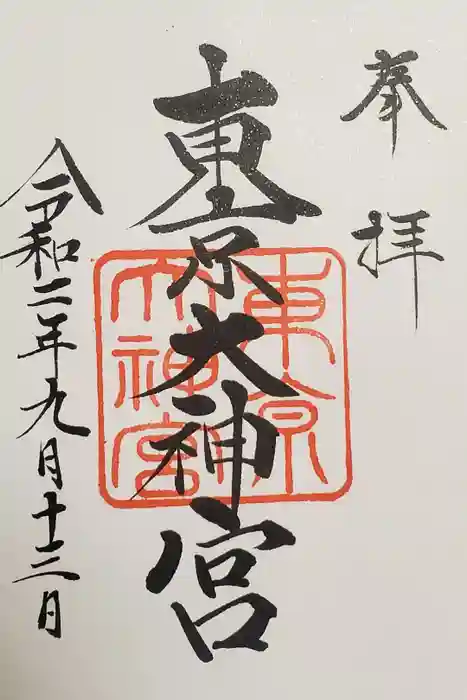 奉拝
東京大神宮
東京
大神宮
令和二年九月十三日